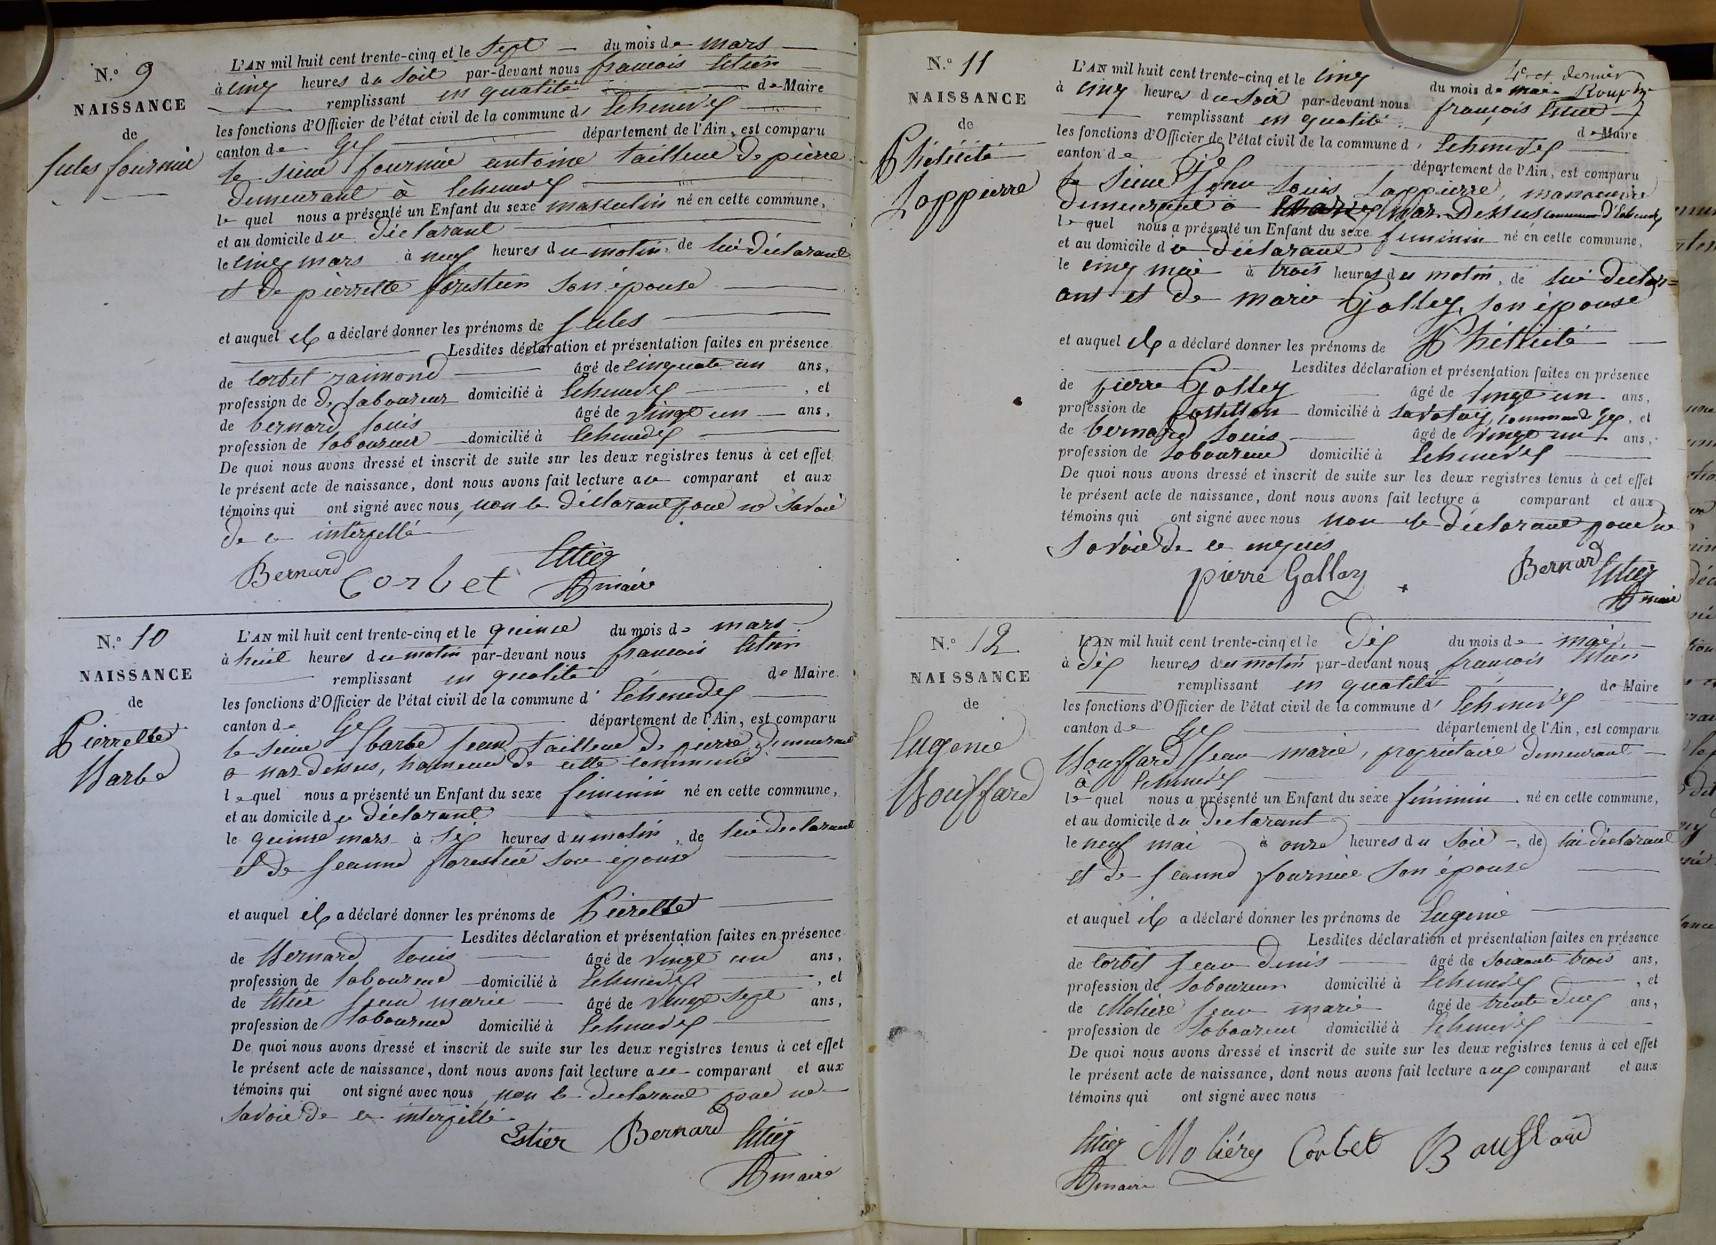 N.° 9
NAISSANCE
de
Jules fournier
L'AN mil huit cent trente-cinq et le Sept du mois de mars
à cinq heures du soir par-devant nous francois Estier
remplissant en qualité de Maire
les fonctions d'Officier de l'état civil de la commune d' Echenevex
canton de Gex département de l'Ain, est comparu
le sieur fournier antoine tailleur de pierre
demeurant à Echenevex
le quel nous a présenté un Enfant du sexe masculin né en cette commune,
et au domicile du déclarant
le cinq mars à neuf heures du matin, de lui déclarant
et de pierrette forestier son épouse
et auquel il a déclaré donner les prénoms de Jules
Lesdites déclaration et présentation faites en présence
de Corbet raimond âgé de cinquante un ans,
profession de laboureur domicilié à Echenevex, et
de bernard louis âgé de vingt un ans,
profession de laboureur domicilié à Echenevex
De quoi nous avons dressé et inscrit de suite sur les deux registres tenus à cet effet
le présent acte de naissance, dont nous avons fait lecture au comparant et aux
témoins qui ont signé avec nous, non le déclarant pour ne savoir
de ce interpellé
Bernard Corbet Estier
maire
N.° 10
NAISSANCE
de
Pierrette
Barbe
L'AN mil huit cent trente-cinq et le quinze du mois de mars
à huit heures du matin par-devant nous francois Estier
remplissant en qualité de Maire
les fonctions d'Officier de l'état civil de la commune d' Echenevex
canton de Gex département de l'Ain, est comparu
le sieur barbe Jean tailleur de pierre, demeurant
a nar dessus, hameau de cette commune
le quel nous a présenté un Enfant du sexe féminin né en cette commune,
et au domicile du déclarant
le quinze mars à six heures du matin, de lui déclarant
et de Jeanne forestier son épouse
et auquel il a déclaré donner les prénoms de Pierrette
Lesdites déclaration et présentation faites en présence
de Bernard louis âgé de vingt un ans,
profession de laboureur domicilié à Echenevex, et
de Estier Jean marie âgé de vingt sept ans,
profession de laboureur domicilié à Echenevex
De quoi nous avons dressé et inscrit de suite sur les deux registres tenus à cet effet
le présent acte de naissance, dont nous avons fait lecture au comparant et aux
témoins qui ont signé avec nous, non le déclarant pour ne
savoir de ce interpellé
Estier Bernard Estier
maire
N.° 11
NAISSANCE
de
Phélicité
Lappierre
L'AN mil huit cent trente-cinq et le cinq du mois de mai
à cinq heures du soir par-devant nous françois Estier
remplissant en qualité de Maire
les fonctions d'Officier de l'état civil de la commune d' Echenevex
canton de Gex département de l'Ain, est comparu
le sieur Jean Louis Lappierre, manoeuvre
demeurant a nar Dessus commune d'Echenevex
le quel nous a présenté un Enfant du sexe féminin né en cette commune,
et au domicile du déclarant
le cinq mai à trois heures du matin, de lui déclar=
ant et de marie Golley, son épouse
et auquel il a déclaré donner les prénoms de Phélicité
Lesdites déclaration et présentation faites en présence
de pierre Golley âgé de vingt un ans,
profession de postillon domicilié à commune de Gex, et
de bernard louis âgé de vingt un ans,
profession de laboureur domicilié à Echenevex
De quoi nous avons dressé et inscrit de suite sur les deux registres tenus à cet effet
le présent acte de naissance, dont nous avons fait lecture à comparant et aux
témoins qui ont signé avec nous non le déclarant pour ne
savoir de ce enquis
pierre Gollay Bernard Estier
maire
N.° 12
NAISSANCE
de
Eugénie
Bouffard
L'AN mil huit cent trente-cinq et le Dix du mois de mai
à Dix heures du matin par-devant nous françois Estier
remplissant en qualité de Maire
les fonctions d'Officier de l'état civil de la commune d' Echenevex
canton de Gex département de l'Ain, est comparu
Bouffard Jean marie, propriétaire demeurant
à Echenevex
le quel nous a présenté un Enfant du sexe féminin né en cette commune,
et au domicile du déclarant
le neuf mai à onze heures du soir, de lui déclarant
et de Jeanne fournier son épouse
et auquel il a déclaré donner les prénoms de Eugénie
Lesdites déclaration et présentation faites en présence
de Corbet Jean denis âgé de soixante trois ans,
profession de laboureur domicilié à Echenevex, et
de Molière Jean marie âgé de trente deux ans,
profession de laboureur domicilié à Echenevex
De quoi nous avons dressé et inscrit de suite sur les deux registres tenus à cet effet
le présent acte de naissance, dont nous avons fait lecture aux comparant et aux
témoins qui ont signé avec nous
Estier Moliére Corbet Bouffard
maire